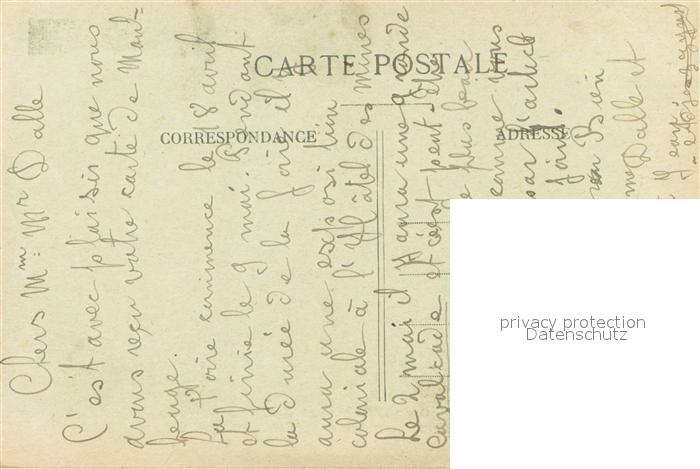 CARTE POSTALE
CORRESPONDANCE
ADRESSE
Chers Mm: Mr Dalle
C'est avec plaisir que nous
avons reçu votre carte de Mau-
beuge.
La Foire commence le 18 avril
et finie le 9 mai. Pendant
la durée de la foire il
aura une exposition
coloniale à l'Hôtel des Mines
Le 2 mai il y aura une grande
cavalcade et c'est peut être
le plus beau
comme vous
par l'article
joint.
Bien
mme Dalle et
privacy protection
Datenschutz